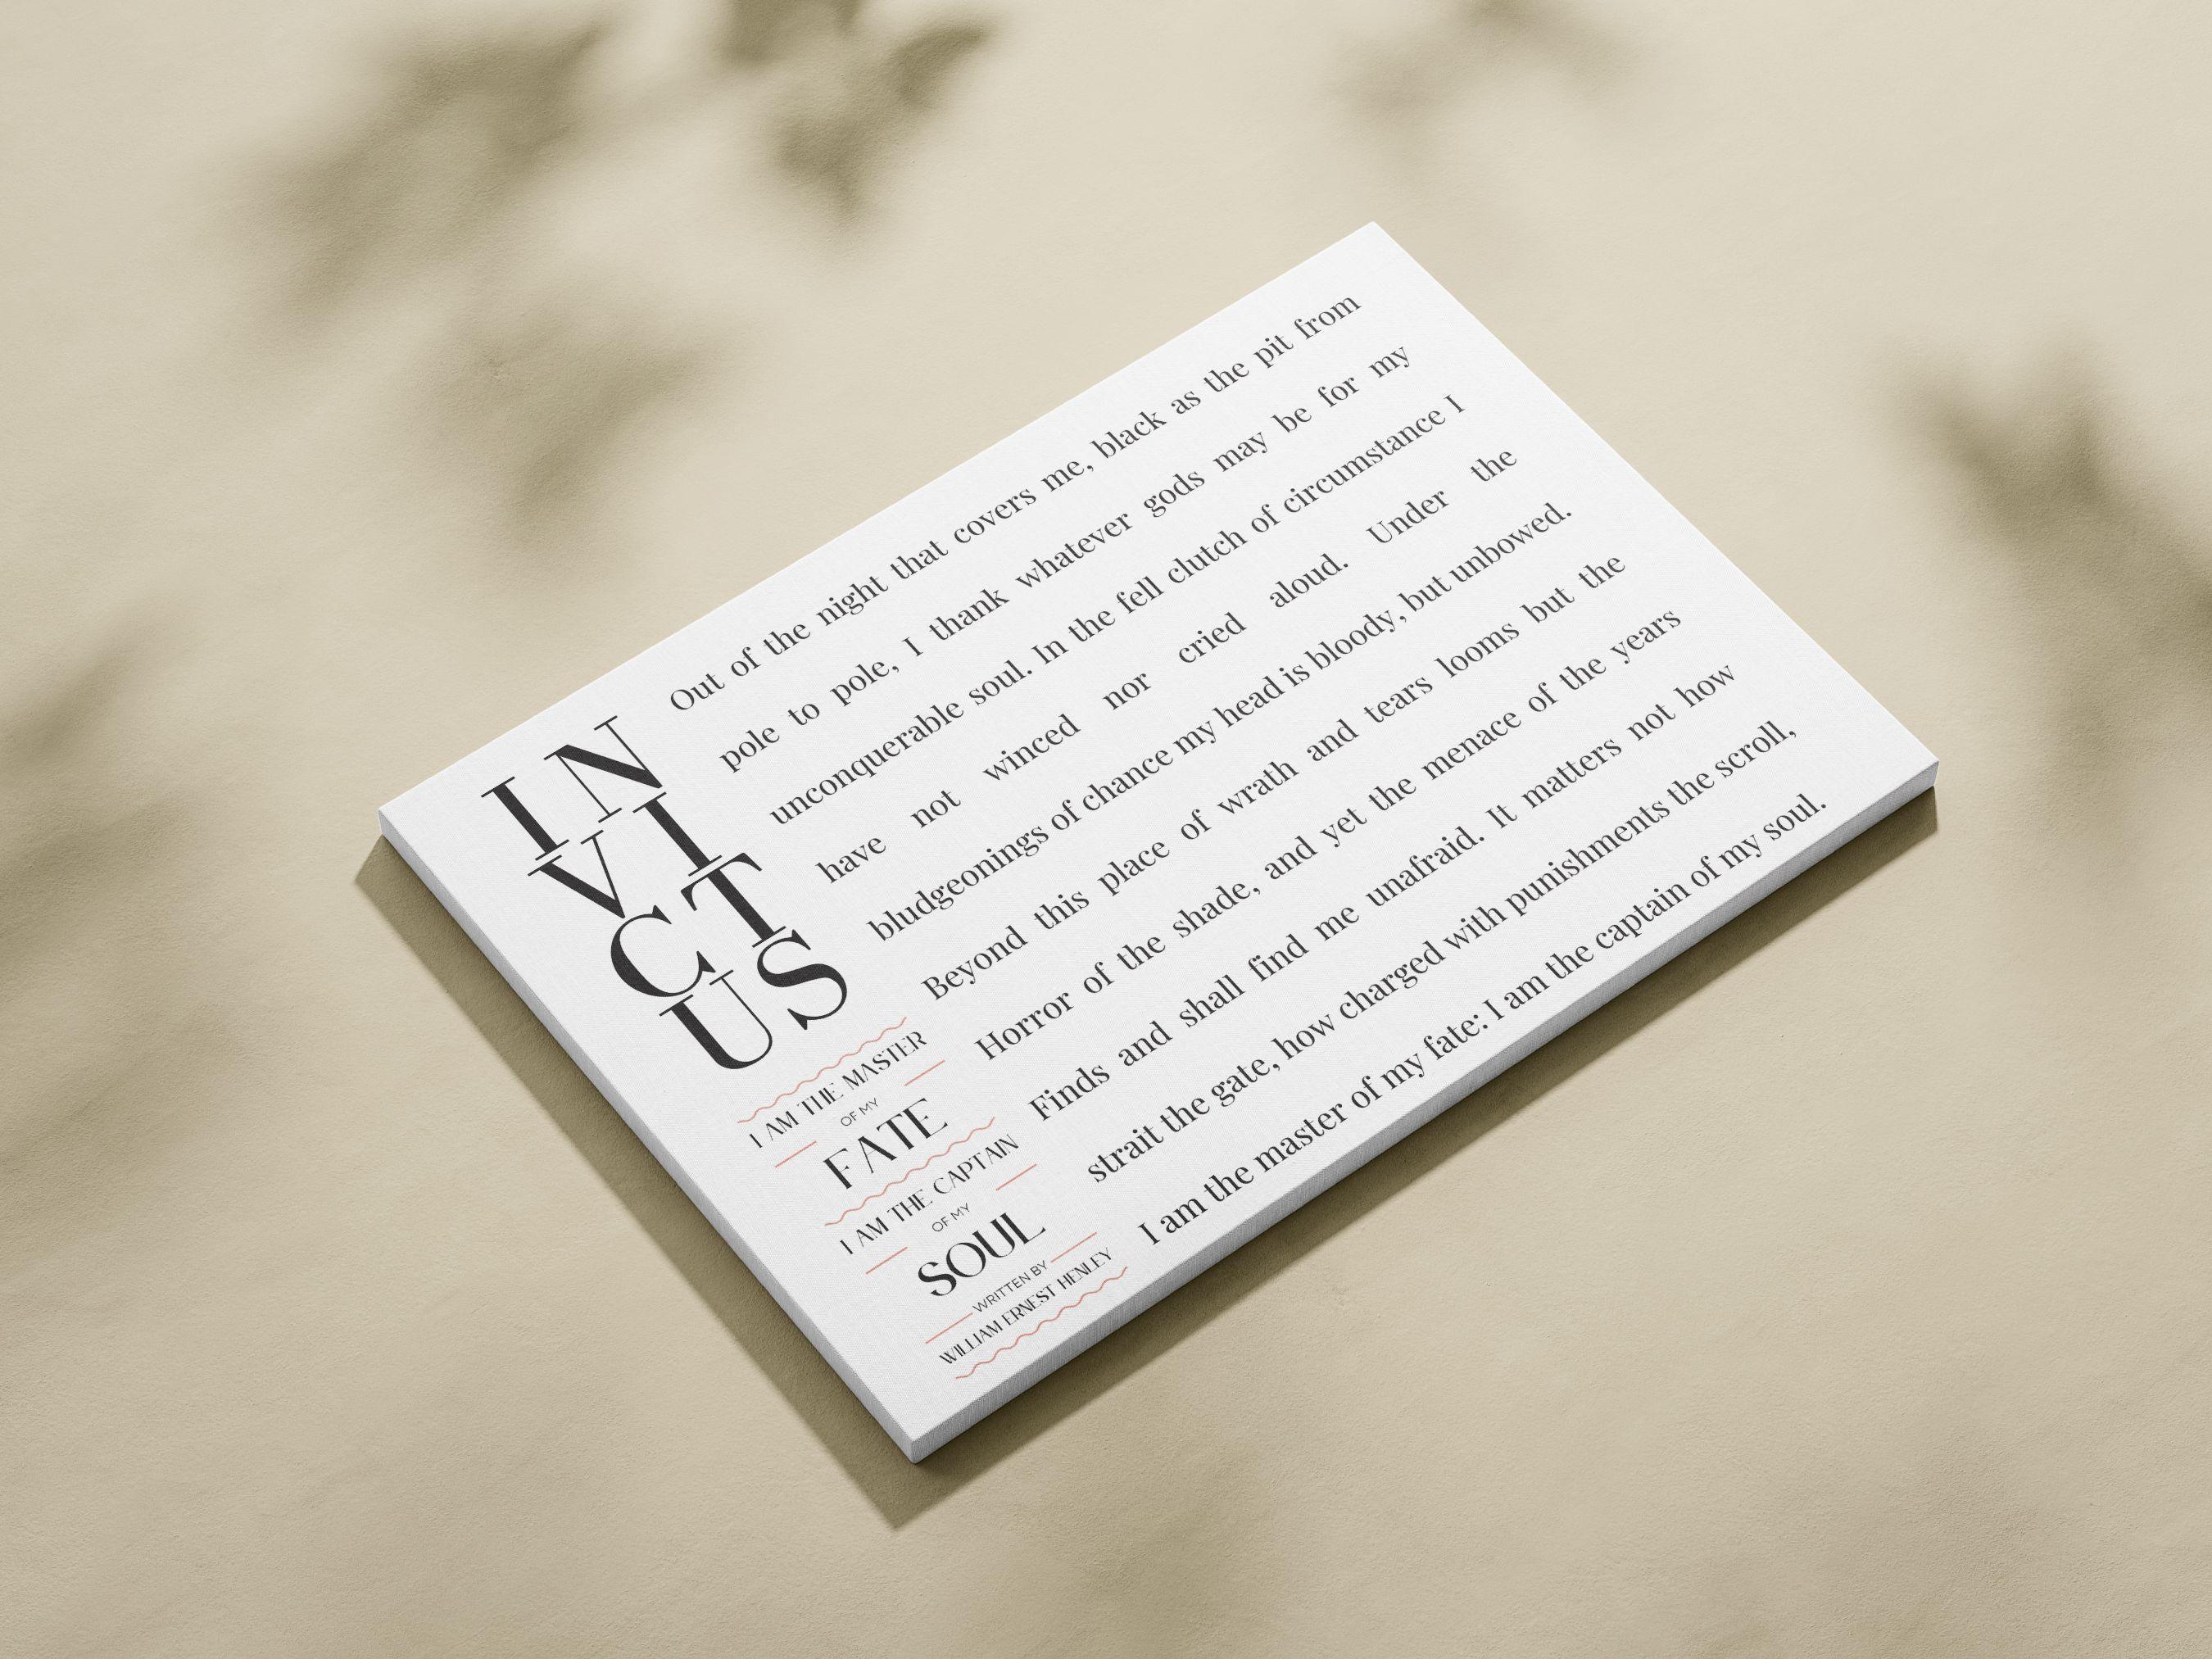 IN
VI
CT
US
I AM THE MASTER
OF MY
FATE
I AM THE CAPTAIN
OF MY
SOUL
WRITTEN BY
WILLIAM ERNEST HENLEY
Out of the night that covers me, black as the pit from
pole to pole, I thank whatever gods may be for my
unconquerable soul. In the fell clutch of circumstance I
have not winced nor cried aloud. Under the
bludgeonings of chance my head is bloody, but unbowed.
Beyond this place of wrath and tears looms but the
Horror of the shade, and yet the menace of the years
Finds and shall find me unafraid. It matters not how
strait the gate, how charged with punishments the scroll,
I am the master of my fate: I am the captain of my soul.